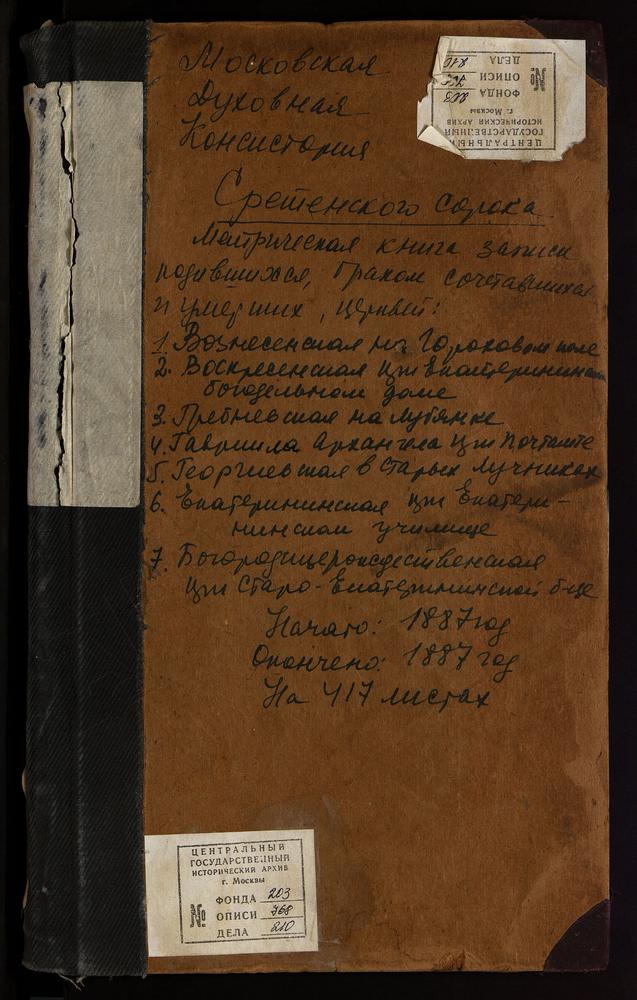 Московская
Духовная
Консистория
ЦЕНТРАЛЬНЫЙ
ГОСУДАРСТВЕННЫЙ
ИСТОРИЧЕСКИЙ АРХИВ
г. Москвы
№
ФОНДА 203
ОПИСИ
ДЕЛА
Сретенского сорока
Метрическая книга записи
родившихся, браком сочетавшихся
и умерших, церквей:
1. Вознесенская на Гороховом поле
2. Воскресенская при Екатерининском
богодельном доме
3. Гребневская на Лубянке
4. Гавриила Архангела при Почтамте
5. Георгиевская в Старых Лучниках
6. Екатерининская при Екатери-
нинском училище
7. Богородицерождественская
при Старо-Екатерининской б-це
Начато: 1887 год
Окончено: 1887 год
На 417 листах
ЦЕНТРАЛЬНЫЙ
ГОСУДАРСТВЕННЫЙ
ИСТОРИЧЕСКИЙ АРХИВ
г. Москвы
№
ФОНДА 203
ОПИСИ 768
ДЕЛА 210